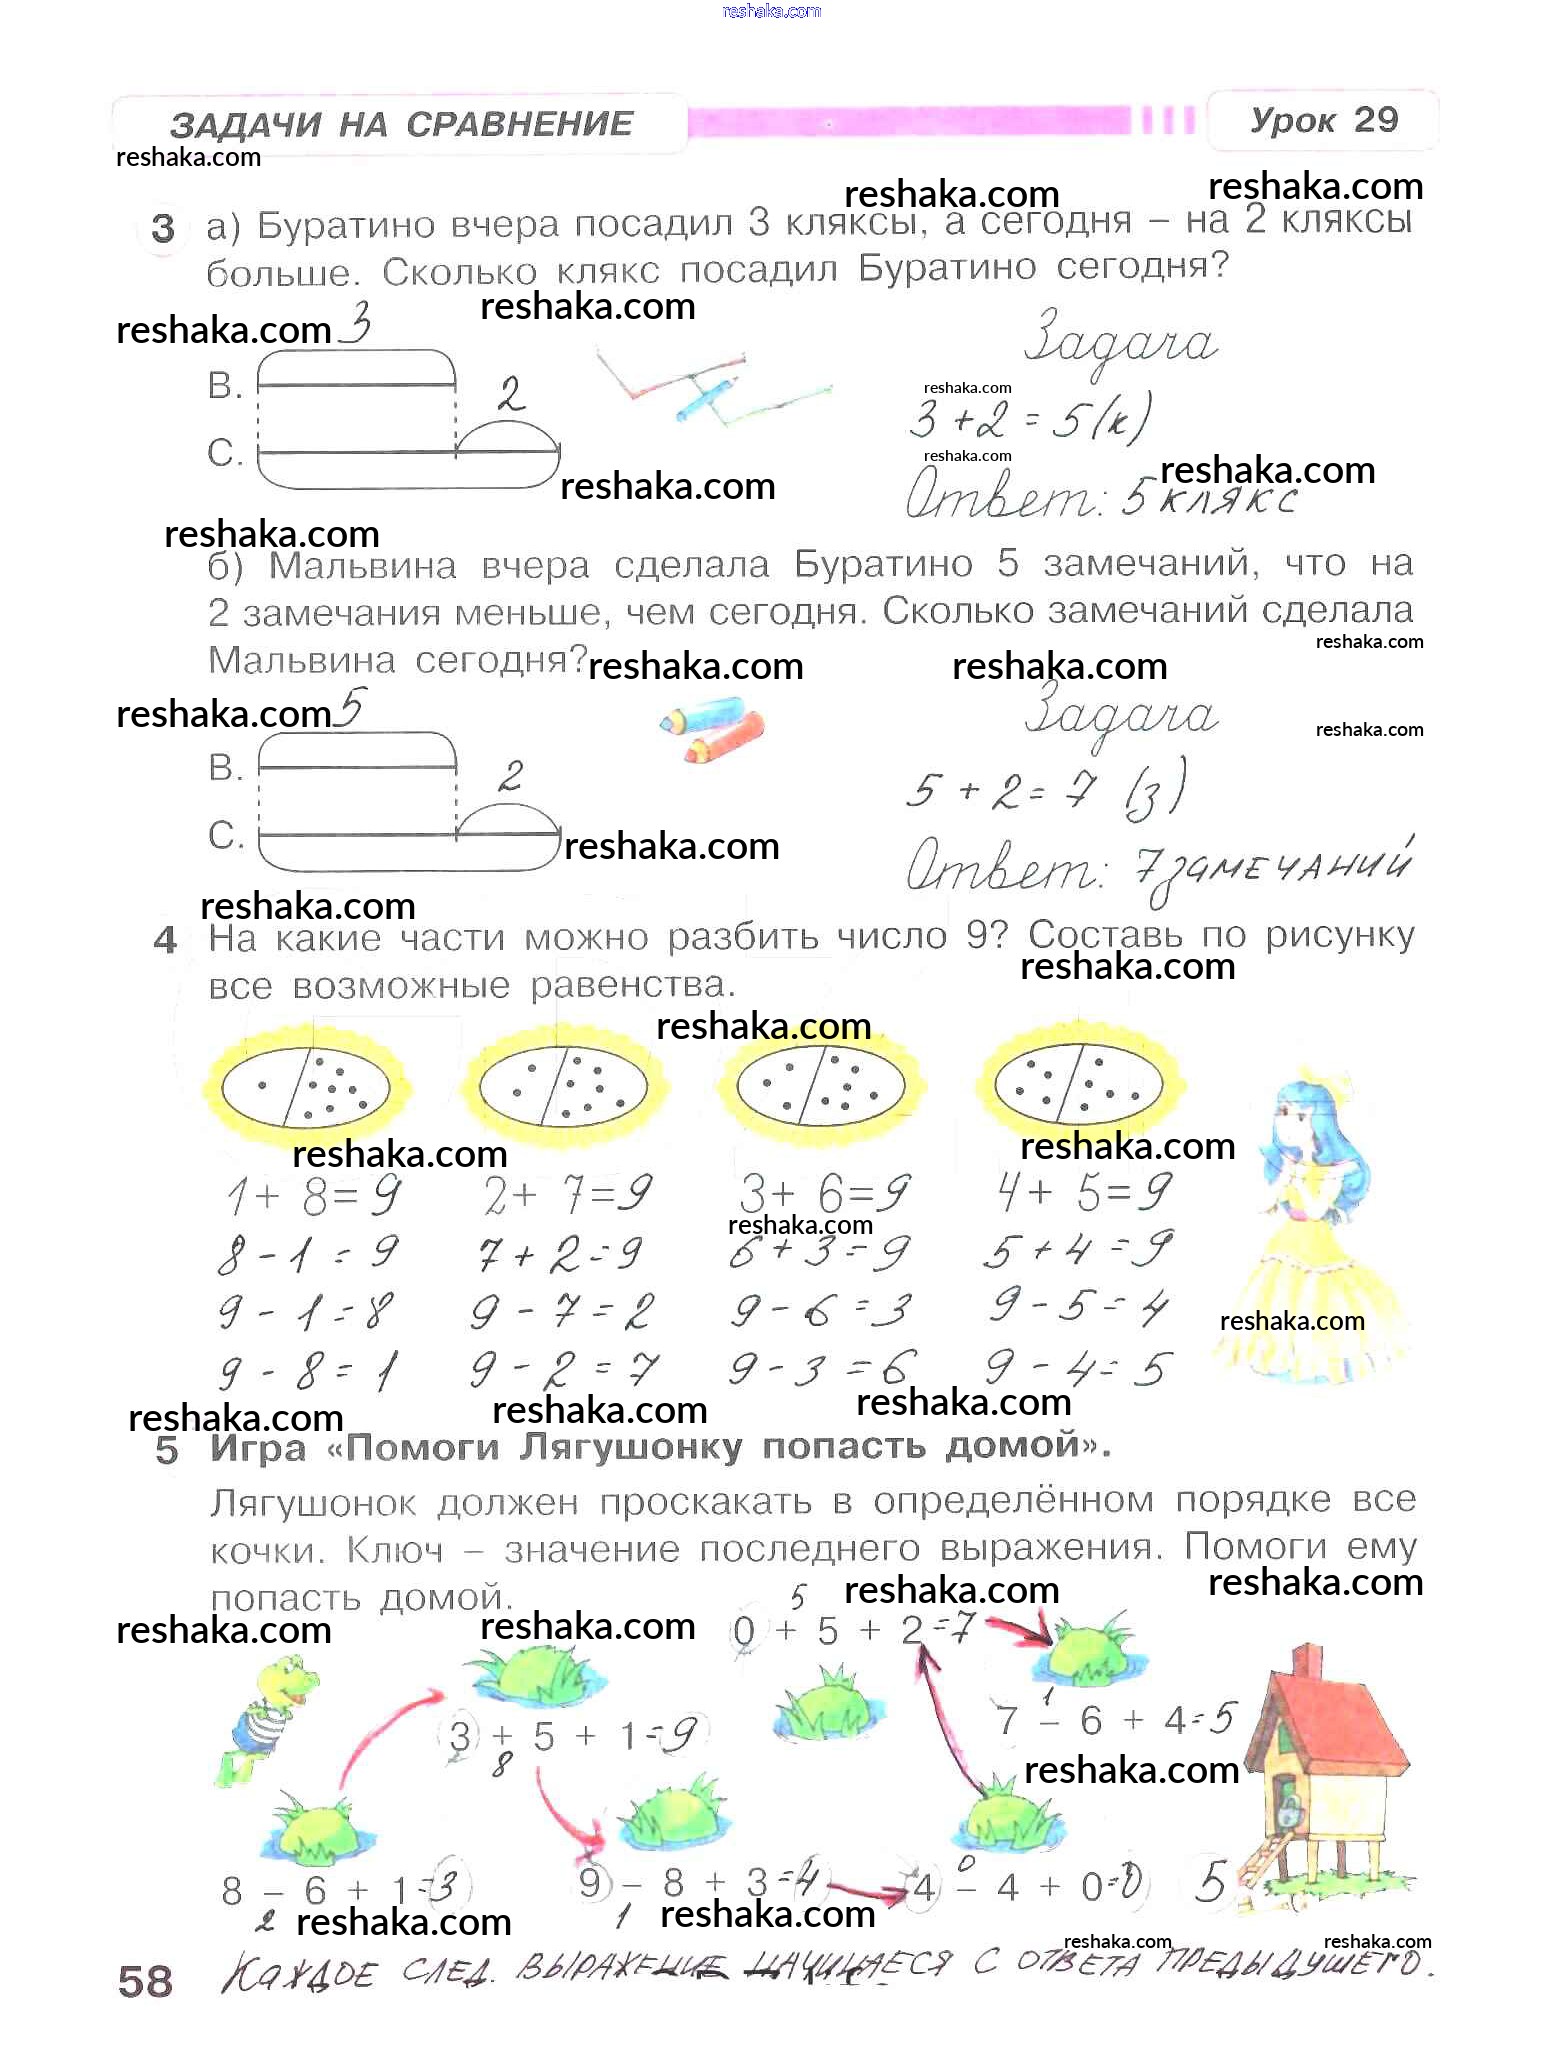 reshaka.com
ЗАДАЧИ НА СРАВНЕНИЕ
Урок 29
reshaka.com
reshaka.com reshaka.com
3 а) Буратино вчера посадил 3 кляксы, а сегодня – на 2 кляксы
больше. Сколько клякс посадил Буратино сегодня?
reshaka.com 3 reshaka.com
Задача
В.
2
reshaka.com
3 + 2 = 5 (к)
С.
reshaka.com
reshaka.com reshaka.com
Ответ: 5 клякс
reshaka.com
б) Мальвина вчера сделала Буратино 5 замечаний, что на
2 замечания меньше, чем сегодня. Сколько замечаний сделала
reshaka.com
Мальвина сегодня? reshaka.com reshaka.com
reshaka.com 5
Задача
reshaka.com
В.
2
5 + 2 = 7 (з)
С.
reshaka.com
Ответ: 7 замечаний
reshaka.com
4 На какие части можно разбить число 9? Составь по рисунку
reshaka.com
все возможные равенства.
reshaka.com
reshaka.com reshaka.com
1 + 8 = 9 2 + 7 = 9 3 + 6 = 9 4 + 5 = 9
reshaka.com
8 - 1 = 9 7 + 2 = 9 6 + 3 = 9 5 + 4 = 9
9 - 1 = 8 9 - 7 = 2 9 - 6 = 3 9 - 5 = 4
reshaka.com
9 - 8 = 1 9 - 2 = 7 9 - 3 = 6 9 - 4 = 5
reshaka.com reshaka.com reshaka.com
5 Игра «Помоги Лягушонку попасть домой».
Лягушонок должен проскакать в определённом порядке все
кочки. Ключ – значение последнего выражения. Помоги ему
попасть домой.
reshaka.com reshaka.com
reshaka.com reshaka.com
5
0 + 5 + 2 = 7
1
7 – 6 + 4 = 5
3 + 5 + 1 = 9
8
reshaka.com
0
8 – 6 + 1 = 3 9 – 8 + 3 = 4 4 – 4 + 0 = 0 5
2 reshaka.com 1 reshaka.com
reshaka.com reshaka.com
58 КАЖДОЕ СЛЕД. ВЫРАЖЕНИЕ НАЧИНАЕСЯ С ОТВЕТА ПРЕДЫДУШЕГО.